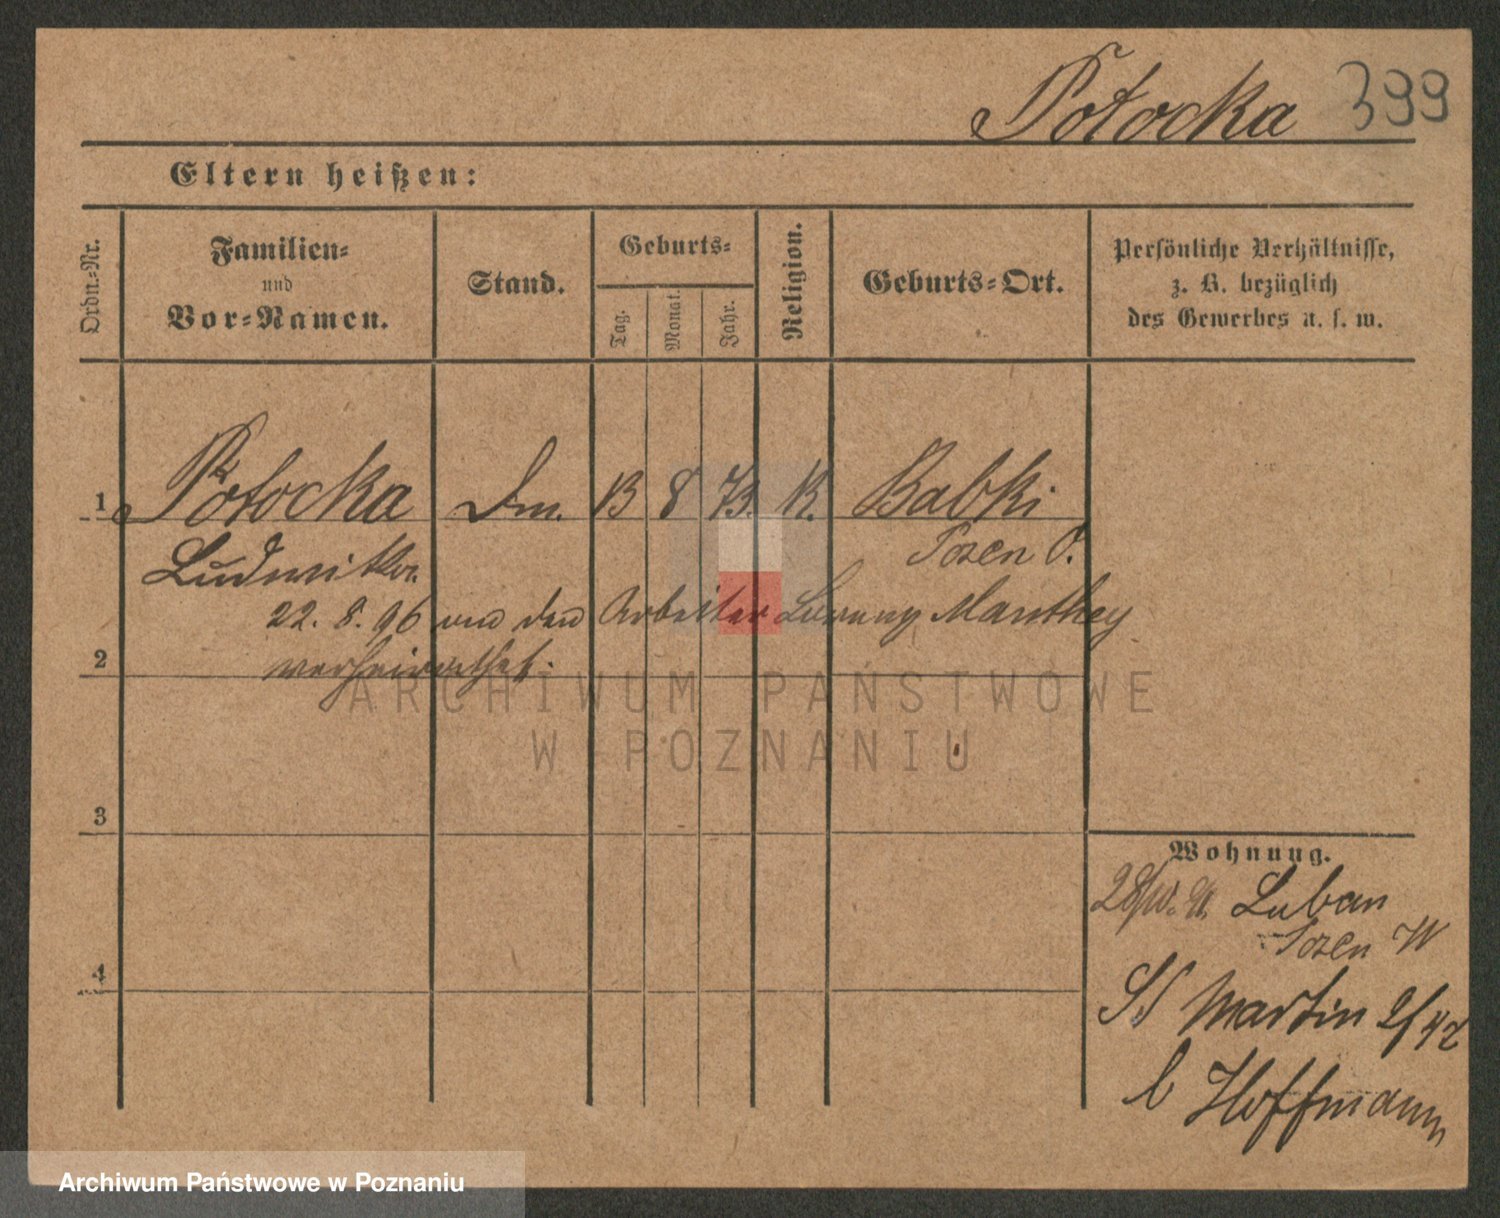 Potocka 399
Eltern heißen:
Ordn.-Nr.
Familien-
und
Vor-Namen.
Stand.
Geburts-
Tag.
Monat.
Jahr.
Religion.
Geburts-Ort.
Persönliche Verhältnisse,
z. B. bezüglich
des Gewerbes u. s. w.
1 Potocka Dm. 13 8 73. K. Babki
Ludwika. Posen O.
22. 8. 96 den Arbeiter Manthey
2 verheirathet.
3
4
Wohnung.
Luban
Posen W
St Martin
b Hoffmann
ARCHIWUM PAŃSTWOWE
W POZNANIU
Archiwum Państwowe w Poznaniu